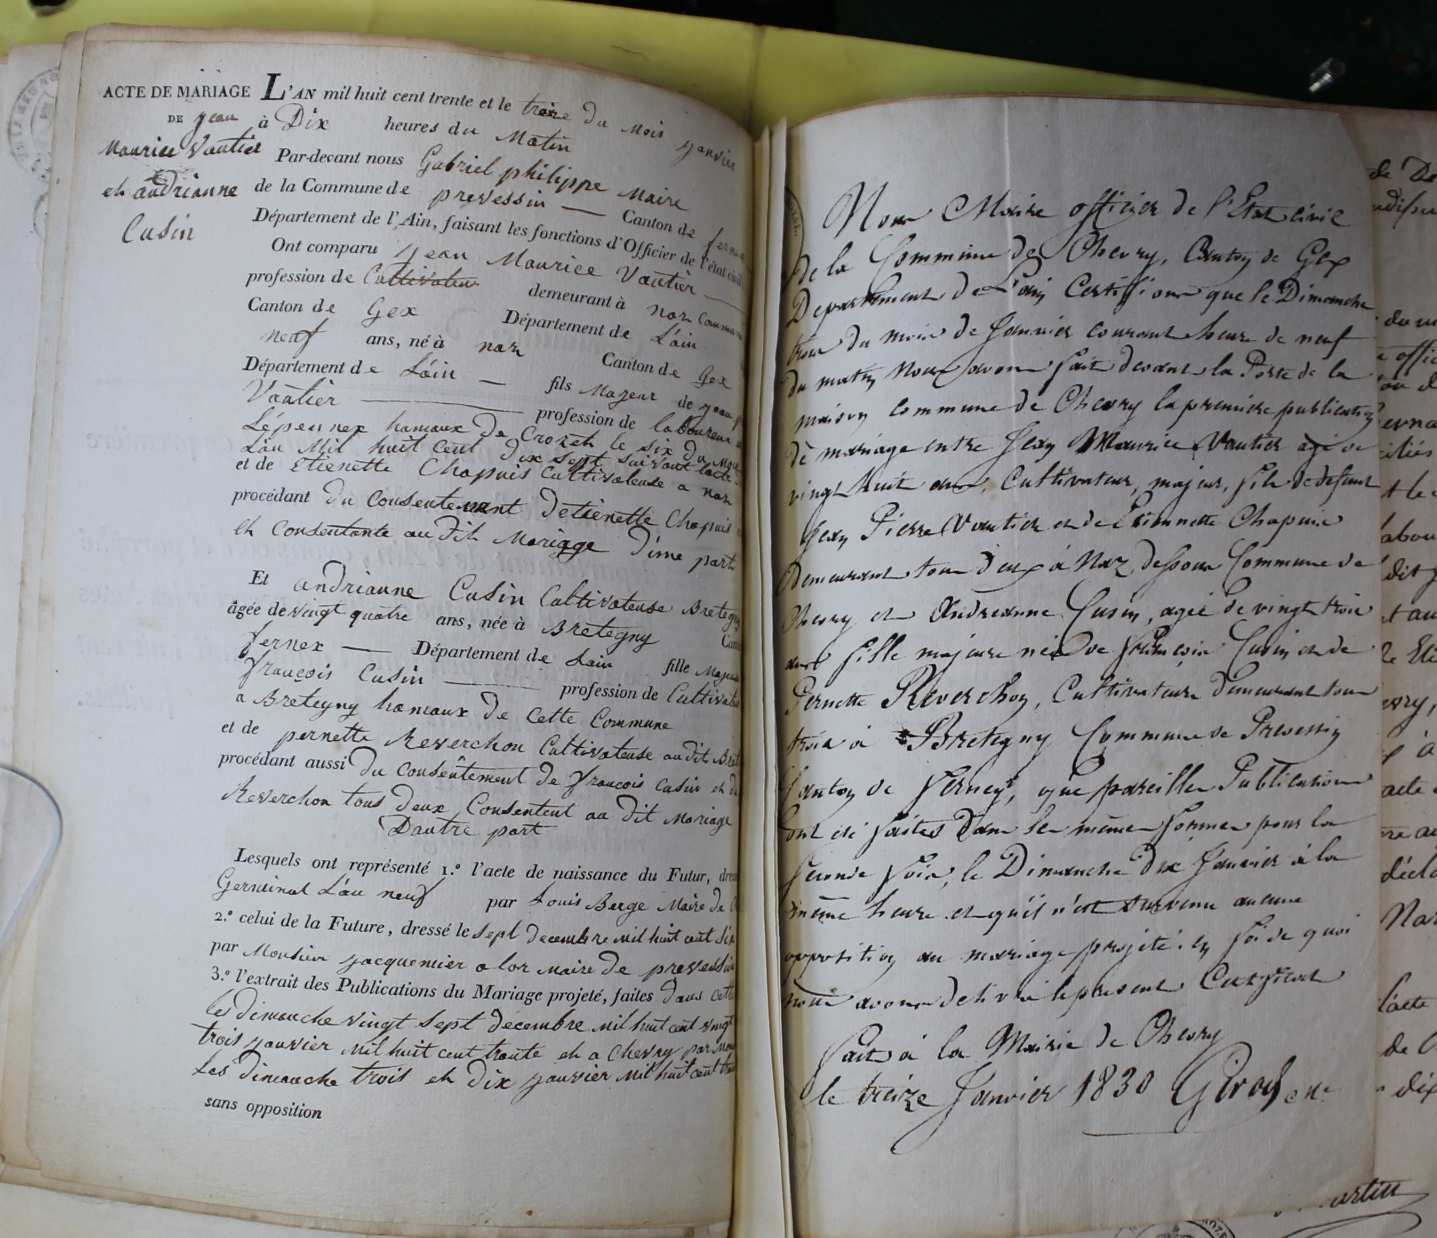 ACTE DE MARIAGE
DE Jean
Maurice Vautier
et andrianne
Cusin
L'AN mil huit cent trente et le treize du mois Janvier
à Dix heures du Matin
Par-devant nous Gabriel philippe Maire
de la Commune de prevessin — Canton de fernex
Département de l'Ain, faisant les fonctions d'Officier de l'état civil
Ont comparu Jean Maurice Vautier —
profession de Cultivateur demeurant à naz Commune
Canton de Gex Département de Lain
neuf ans, né à naz Canton de Gex
Département de Lain — fils Majeur de jean
Vautier — profession de laboureur
Lépennex hameaux de Crozet le six du Mois
Lan Mil huit Cent dix sept suivant lacte
et de Etienette Chapuis Cultivateuse a naz
procédant du Consentement detienette Chapuis
et Consentante au dit Mariage d'une part
Et andrianne Cusin Cultivateuse Bretegny
âgée de vingt quatre ans, née à Bretegny Canton
fernex — Département de Lain fille Majeure
françois Cusin — profession de Cultivateur
a Bretegny hameaux de Cette Commune
et de pernette Reverchon Cultivateuse au dit Bret
procédant aussi du Consentement de françois Cusin et de
Reverchon tous deux Consentent au dit Mariage
Dautre part
Lesquels ont représenté 1.º l'acte de naissance du Futur, dressé
Germinal Lan neuf par Louis Berge Maire de
2.º celui de la Future, dressé le sept decembre Mil huit cent six
par Monsieur jacquemier alor Maire de prevessin
3.º l'extrait des Publications du Mariage projeté, faites dans cette
les dimanche vingt sept decembre Mil huit cent vingt
trois janvier Mil huit cent trente et a Chevry par Mon
Les dimanche trois et dix janvier Mil huit cent tren
sans opposition
Nous Maire officier de l'Etat civil
de la Commune de Chevry, Canton de Gex
Departement de l'ain Certifions que le Dimanche
trois du mois de Janvier courant heure de neuf
du matin nous avons fait devant la Porte de la
maison commune de Chevry la premiere publication
de mariage entre Jean Maurice Vautier agé de
vingt huit ans, Cultivateur, majeur, fils de defunt
Jean Pierre Vautier et de Etiennette Chapuis
demeurant tous deux à Naz dessous Commune de
Chevry et Andreanne Cusin, agée de vingt trois
ans fille majeure née de François Cusin et de
Pernette Reverchon, Cultivateurs demeurant tous
trois à Bretigny Commune de Prevessin
Canton de Ferney, que pareilles Publications
ont été faites dans les mêmes formes pour la
seconde fois, le Dimanche dix Janvier à la
même heure et qu'il n'est survenu aucune
opposition au mariage projeté. en foi de quoi
nous avons delivré le present Certificat
fait à la Mairie de Chevry
le treize Janvier 1830 Girod